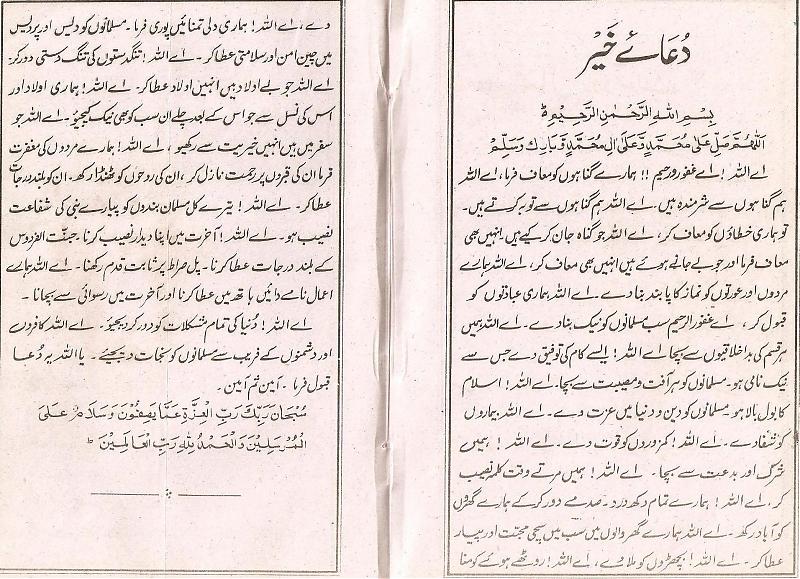 دُعَائے خَیْر
بِسْمِ اللّٰهِ الرَّحْمٰنِ الرَّحِیْمِ ؕ
اَللّٰهُمَّ صَلِّ عَلٰی مُحَمَّدٍ وَّعَلٰی اٰلِ مُحَمَّدٍ وَّبَارِكْ وَسَلِّمْ
اے اللہ ! اے غفور رحیم !! ہمارے گناہوں کو معاف فرما، اے اللہ
ہم گناہوں سے شرمندہ ہیں۔ اے اللہ ہم گناہوں سے توبہ کرتے ہیں۔
تو ہماری خطاؤں کو معاف کر، اے اللہ جو گناہ جان کر کیے ہیں انہیں بھی
معاف فرما اور جو بے جانے ہوئے ہیں انہیں بھی معاف کر، اے اللہ ہمارے
مردوں اور عورتوں کو نماز کا پابند بنا دے۔ اے اللہ ہماری عبادتوں کو
قبول کر، اے غفور الرحیم سب مسلمانوں کو نیک بنا دے۔ اے اللہ ہمیں
ہر قسم کی بداخلاقیوں سے بچا اے اللہ ! ایسے کام کی توفیق دے جس سے
نیک نامی ہو۔ مسلمانوں کو ہر آفت و مصیبت سے بچا۔ اے اللہ ! اسلام
کا بول بالا ہو مسلمانوں کو دین و دنیا میں عزت دے۔ اے اللہ بیماروں
کو شفا دے۔ اے اللہ ! کمزوروں کو قوت دے۔ اے اللہ ! ہمیں
شرک اور بدعت سے بچا۔ اے اللہ ! ہمیں مرتے وقت کلمہ نصیب
کر، اے اللہ ! ہمارے تمام دکھ درد۔ صدمے دور کر کے ہمارے گھروں
کو آباد رکھ۔ اے اللہ ہمارے گھر والوں میں سب میں سچی محبت اور پیار
عطا کر۔ اے اللہ ! بچھڑوں کو ملا دے، اے اللہ ! روٹھے ہوئے کو منا
دے، اے اللہ ! ہماری دلی تمنائیں پوری فرما۔ مسلمانوں کو دیس اور پردیس
میں چین امن اور سلامتی عطا کر۔ اے اللہ ! تنگدستوں کی تنگ دستی دور کر۔
اے اللہ جو بے اولاد ہیں انہیں اولاد عطا کر۔ اے اللہ ! ہماری اولاد اور
اس کی نسل سے جو اس کے بعد چلے ان سب کو بھی نیک کیجیؤ۔ اے اللہ جو
سفر میں ہیں انہیں خیریت سے رکھیو، اے اللہ ! ہمارے مردوں کی مغفرت
فرما ان کی قبروں پر رحمت نازل کر، ان کی روحوں کو ٹھنڈا رکھ۔ ان کو بلند درجات
عطا کر۔ اے اللہ ! تیرے کل مسلمان بندوں کو پیارے نبی کی شفاعت
نصیب ہو۔ اے اللہ ! آخرت میں اپنا دیدار نصیب کرنا۔ جنّت الفردوس
کے بلند درجات عطا کرنا۔ پل صراط پر ثابت قدم رکھنا۔ اے اللہ ہمارے
اعمال نامے دائیں ہاتھ میں عطا کرنا اور آخرت میں رسوائی سے بچانا۔
اے اللہ ! دُنیا کی تمام مشکلات کو دور کر دیجیؤ۔ اے اللہ کافروں
اور دشمنوں کے فریب سے مسلمانوں کو نجات دیجیئے۔ یا اللہ یہ دُعا
قبول فرما۔ آمین ثم آمین۔
سُبْحَانَ رَبِّكَ رَبِّ الْعِزَّةِ عَمَّا یَصِفُوْنَ وَسَلَامٌ عَلَی
الْمُرْسَلِیْنَ وَالْحَمْدُ لِلّٰهِ رَبِّ الْعَالَمِیْنَ ؕ